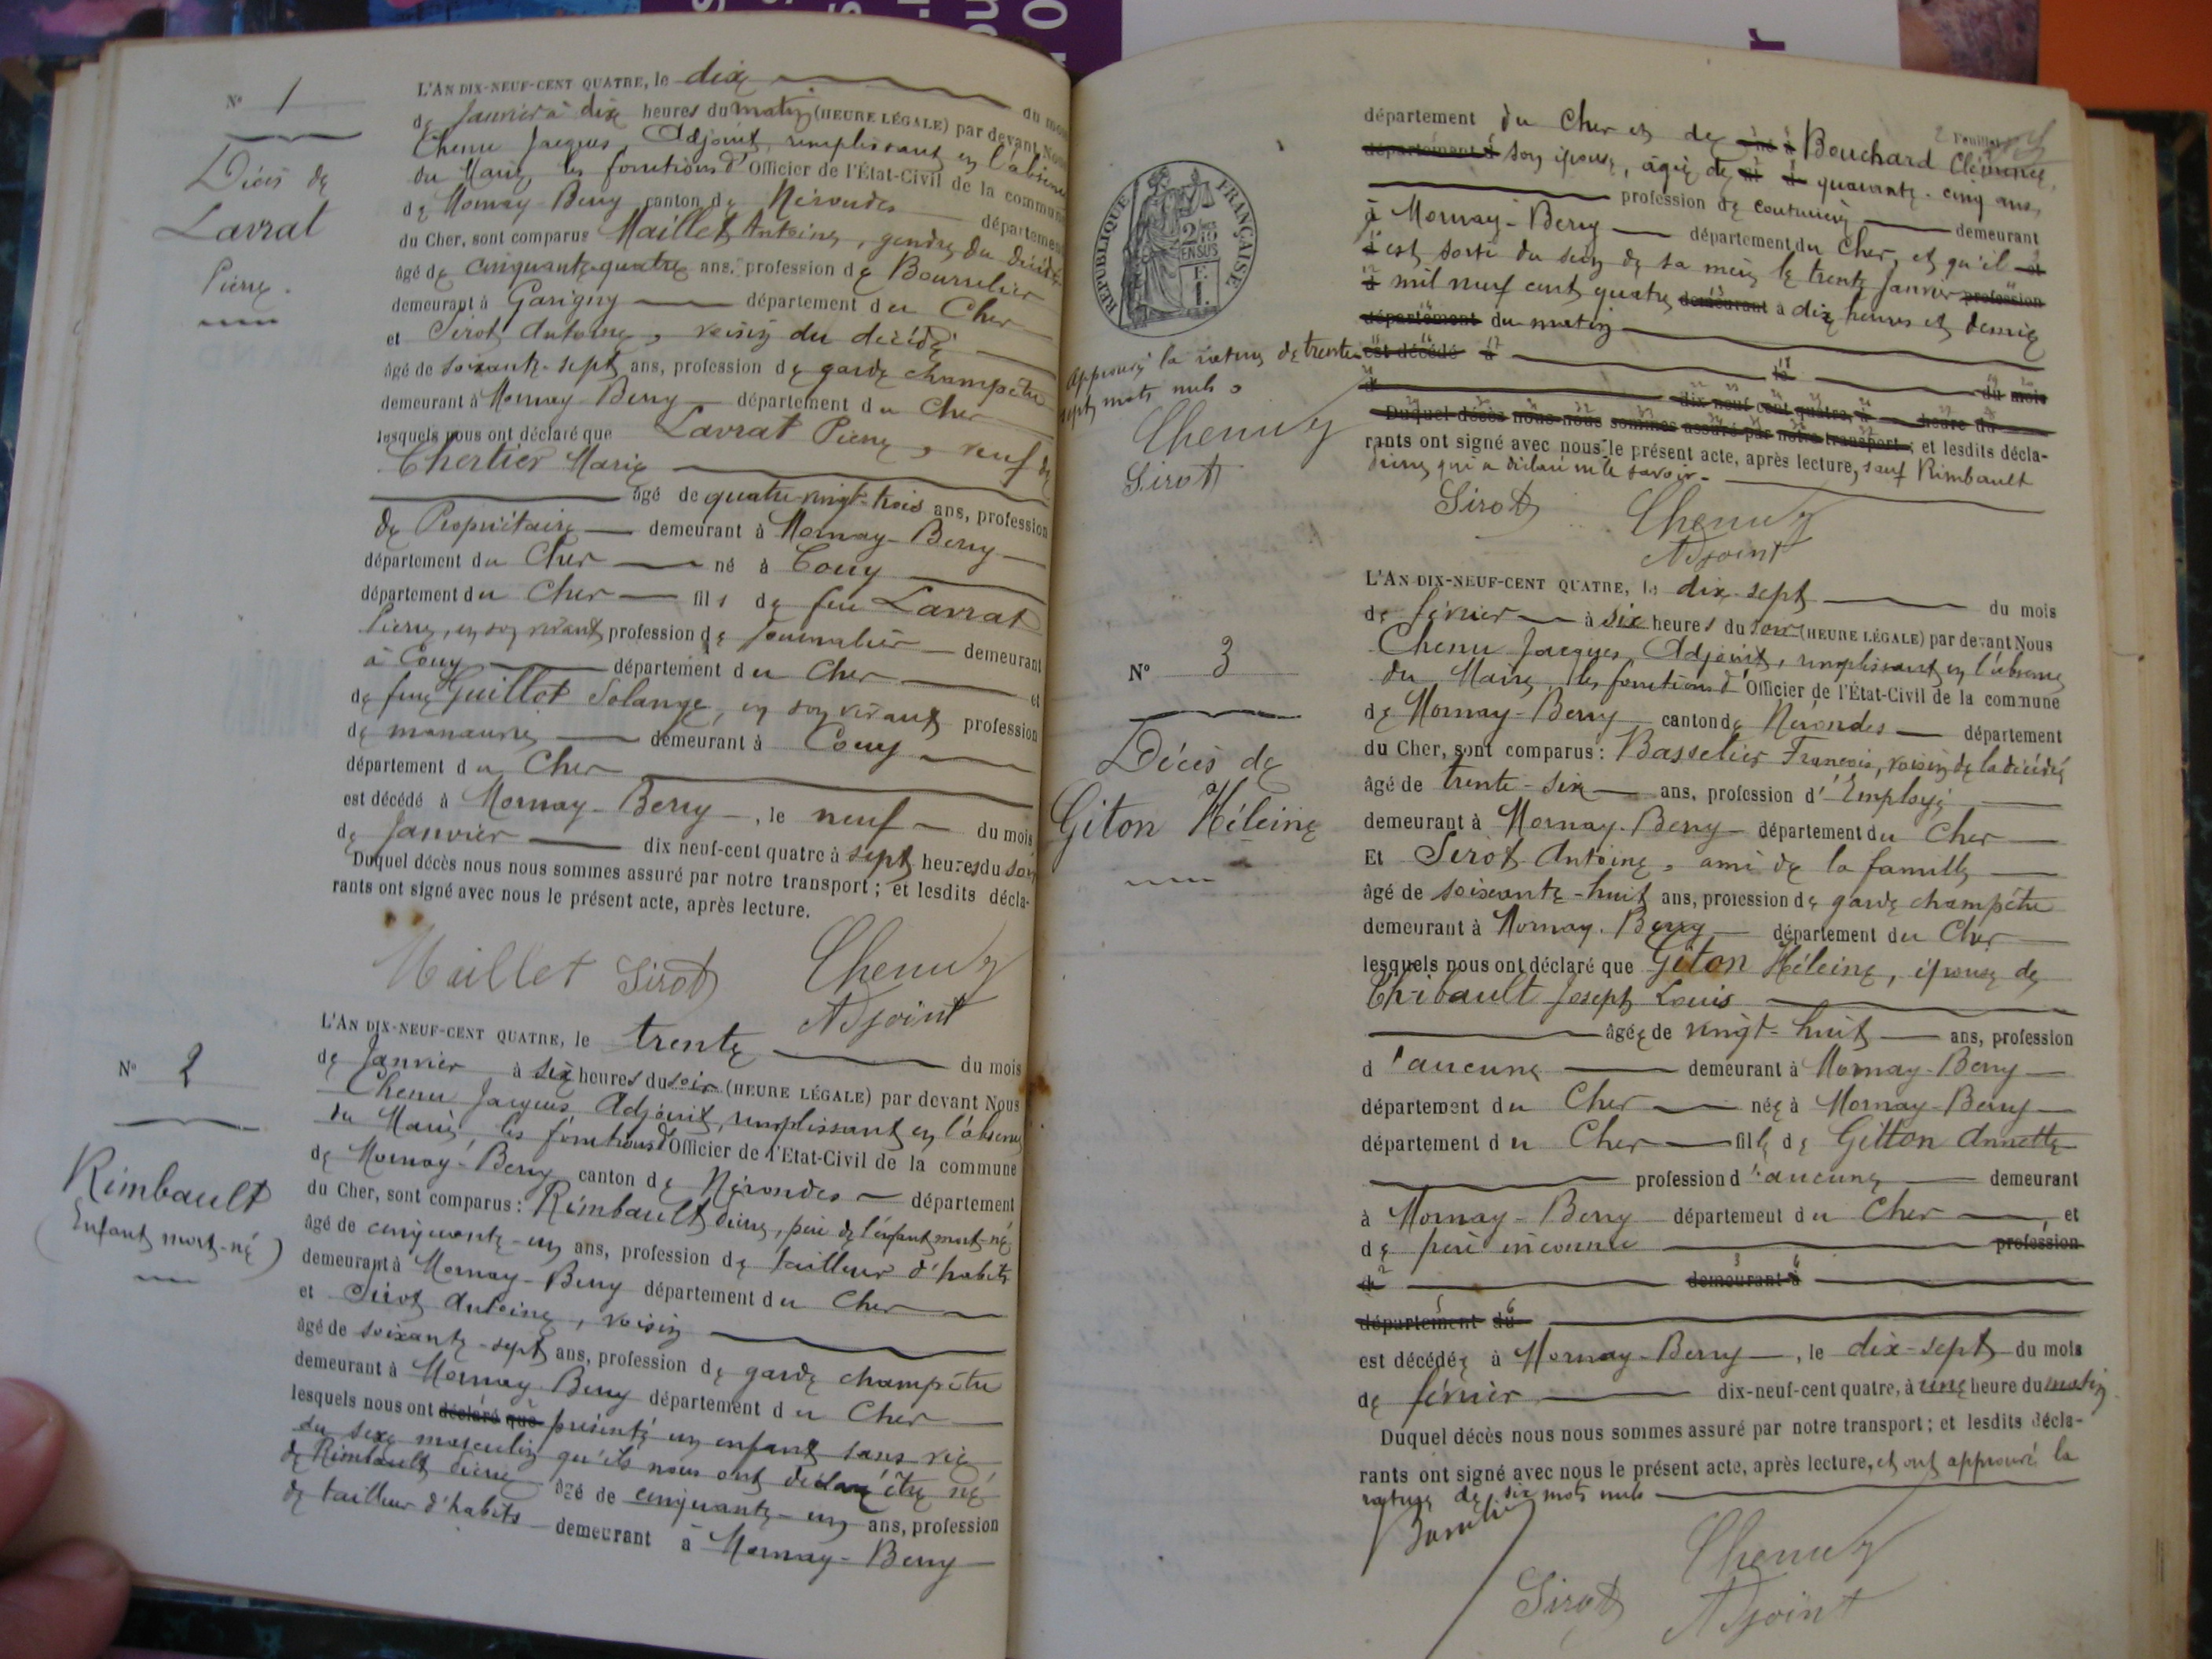 N° 1
Décès de
Lavrat
Pierre.
L'AN DIX-NEUF-CENT QUATRE, le dix du mois
de Janvier à dix heures du matin (HEURE LÉGALE) par devant Nous
Chenu Jacques, Adjoint, remplissant en l'absence
du Maire, les fonctions d'Officier de l'État-Civil de la commune
de Mornay-Berry canton de Nérondes département
du Cher, sont comparus Maillet Antoine, gendre du décédé
âgé de cinquante-quatre ans, profession de Bourrelier
demeurant à Garigny département du Cher
et Sirot Antoine, voisin du décédé
âgé de soixante-sept ans, profession de garde champêtre
demeurant à Mornay-Berry département du Cher
lesquels nous ont déclaré que Lavrat Pierre, veuf de
Chertier Marie
âgé de quatre-vingt-trois ans, profession
de Propriétaire demeurant à Mornay-Berry
département du Cher né à Couy
département du Cher fils de feu Lavrat
Pierre, en son vivant profession de journalier demeurant
à Couy département du Cher et
de feue Guillot Solange, en son vivant profession
de manœuvre demeurant à Couy
département du Cher
est décédé à Mornay-Berry, le neuf du mois
de Janvier dix neuf-cent quatre à sept heures du soir
Duquel décès nous nous sommes assuré par notre transport ; et lesdits décla-
rants ont signé avec nous le présent acte, après lecture.
Maillet Sirot Chenu
Adjoint
N° 2
Rimbault
(Enfant mort-né)
L'AN DIX-NEUF-CENT QUATRE, le trente du mois
de Janvier à six heures du soir (HEURE LÉGALE) par devant Nous
Chenu Jacques, Adjoint, remplissant en l'absence
du Maire, les fonctions d'Officier de l'État-Civil de la commune
de Mornay-Berry canton de Nérondes département
du Cher, sont comparus : Rimbault Pierre, père de l'enfant mort-né
âgé de cinquante-un ans, profession de tailleur d'habits
demeurant à Mornay-Berry département du Cher
et Sirot Antoine, voisin
âgé de soixante-sept ans, profession de garde champêtre
demeurant à Mornay-Berry département du Cher
lesquels nous ont déclaré que présenté un enfant sans vie
du sexe masculin qu'ils nous ont déclaré être né
de Rimbault Pierre âgé de cinquante-un ans, profession
de tailleur d'habits demeurant à Mornay-Berry
2 Feuillet
département du Cher et de né à Bouchard Clémence,
département d son épouse, âgée de quarante-cinq ans,
profession de couturière demeurant
à Mornay-Berry département du Cher, et qu'il et
est sorti du sein de sa mère le trente Janvier profession
mil neuf cent quatre demeurant à dix heures et demie
département du matin
est décédé à
le du mois
d dix neuf cent quatre, à heure du
Duquel décès nous nous sommes assuré par notre transport ; et lesdits décla-
rants ont signé avec nous le présent acte, après lecture, sauf Rimbault
Pierre qui a déclaré ne le savoir.
Sirot Chenu
Adjoint
RÉPUBLIQUE FRANÇAISE
2/10
EN SUS
F.
1.
Approuvé la rature de trente
sept mots nuls
Chenu
Sirot
N° 3
Décès de
Giton Héleine
L'AN DIX-NEUF-CENT QUATRE, le dix-sept du mois
de février à six heures du soir (HEURE LÉGALE) par devant Nous
Chenu Jacques, Adjoint, remplissant en l'absence
du Maire, les fonctions d'Officier de l'État-Civil de la commune
de Mornay-Berry canton de Nérondes département
du Cher, sont comparus : Basselier François, voisin de la décédée
âgé de trente-six ans, profession d'Employé
demeurant à Mornay-Berry département du Cher
Et Sirot Antoine, ami de la famille
âgé de soixante-huit ans, profession de garde champêtre
demeurant à Mornay-Berry département du Cher
lesquels nous ont déclaré que Giton Héleine, épouse de
Thibault Joseph Louis
âgée de vingt-huit ans, profession
d'aucune demeurant à Mornay-Berry
département du Cher née à Mornay-Berry
département du Cher fille de Gitton Annette
profession d'aucune demeurant
à Mornay-Berry département du Cher et
de père inconnu profession
d demeurant à
département du
est décédée à Mornay-Berry, le dix-sept du mois
de février dix-neuf-cent quatre, à une heure du matin
Duquel décès nous nous sommes assuré par notre transport ; et lesdits décla-
rants ont signé avec nous le présent acte, après lecture, et ont approuvé la
rature de six mots nuls
Sirot Chenu
Adjoint